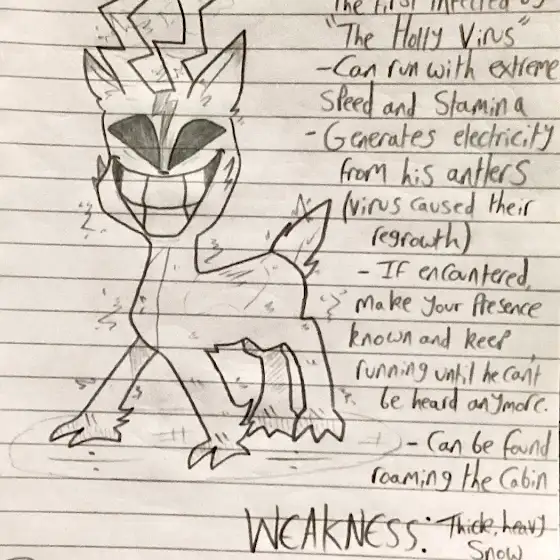 The First infected by
"The Holly Virus"
-Can run with extreme
Speed and Stamina
- Generates electricity
from his antlers
(virus caused their
regrowth)
- IF encountered,
make your presence
known and keep
running until he can't
be heard anymore.
- Can be found
roaming the Cabin
WEAKNESS: Thick, heavy
Snow